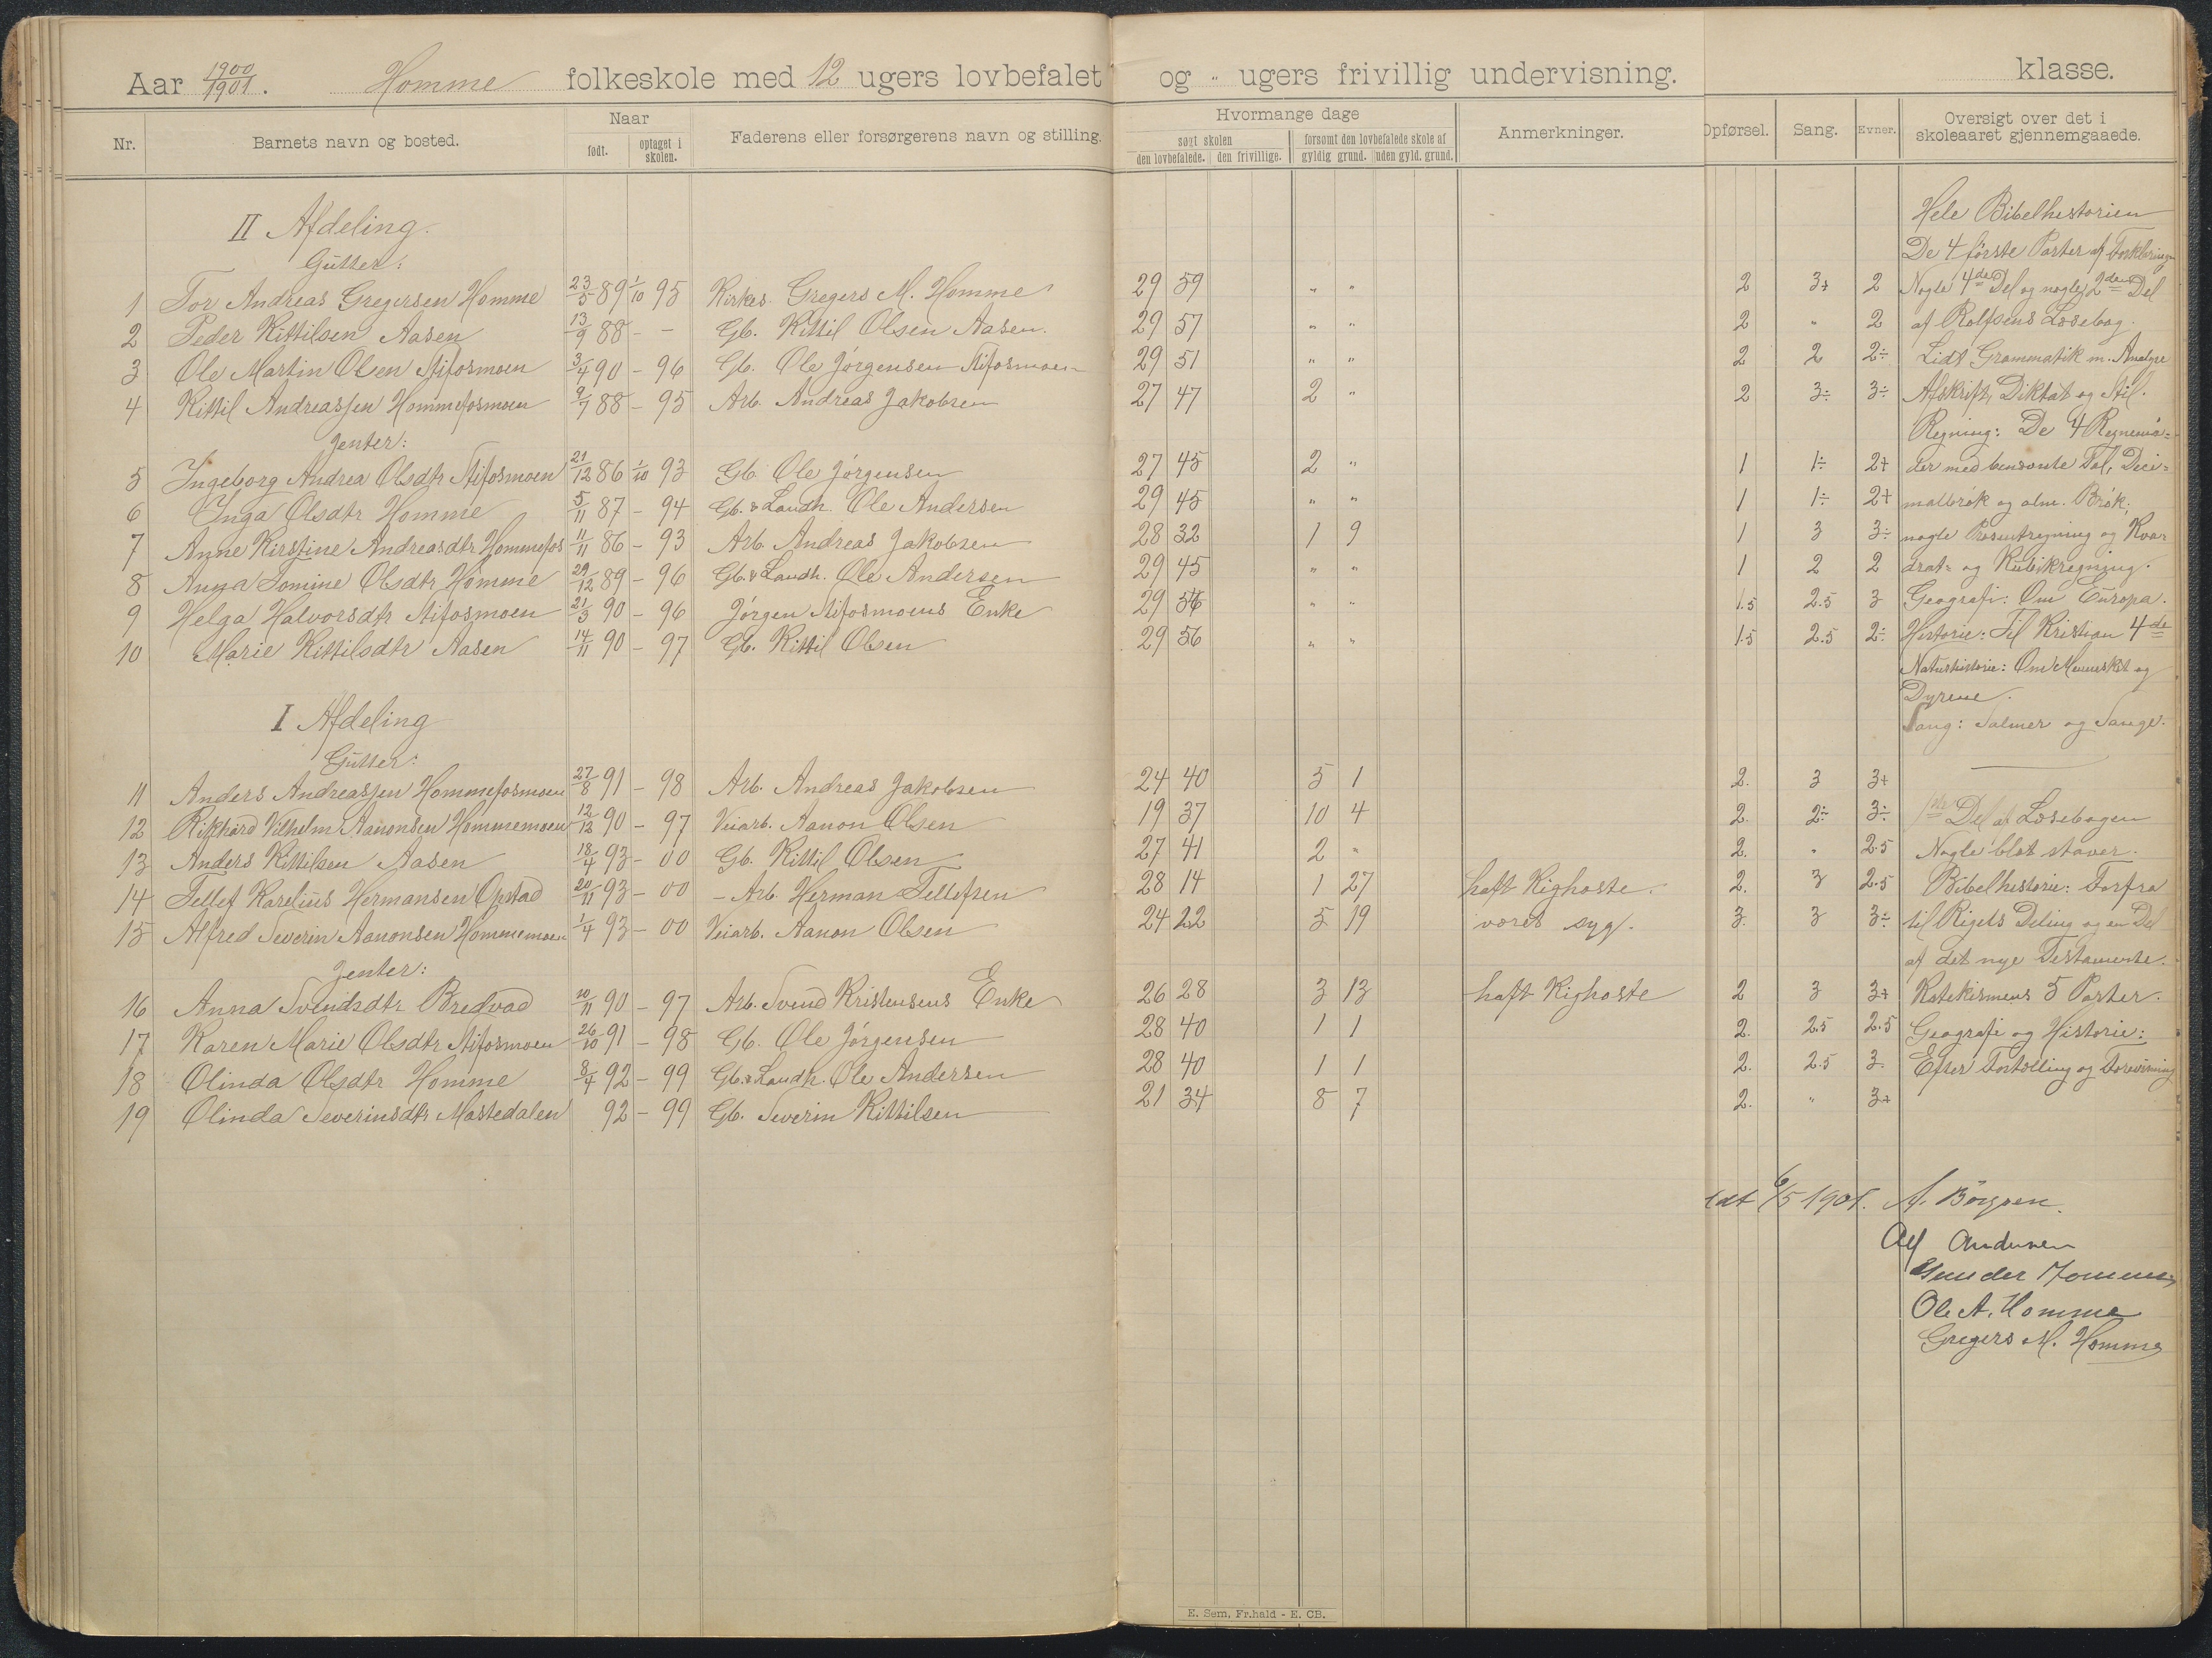 Aar 1900/1901. Homme folkeskole med 12 ugers lovbefalet og " ugers frivillig undervisning. klasse.
Nr. Barnets navn og bosted. Naar født. optaget i skolen. Faderens eller forsørgerens navn og stilling. Hvormange dage søgt skolen den lovbefalede. den frivillige. forsømt den lovbefalede skole af gyldig grund. uden gyld. grund. Anmerkninger. Opførsel. Sang. Evner. Oversigt over det i skoleaaret gjennemgaaede.
Hele Bibelhistorien
II Afdeling.
De 4 første Parter af Forklaringen
Gutter:
1 Tor Andreas Gregersen Homme 23/5 89 1/10 95 Kirkes. Gregers M. Homme 29 59 " " 2 3+ 2 Nogle 4de Del og nogle 2den Del
2 Peder Kittilsen Aasen 13/9 88 - - Gb. Kittil Olsen Aasen. 29 57 " " 2 " 2 af Rolfsens Læsebog.
3 Ole Martin Olsen Stifosmoen 3/4 90 - 96 Gb. Ole Jørgensen Stifosmoen 29 51 " " 2 2 2÷ Lidt Grammatik m. Analyse
4 Kittil Andreassen Hommefosmoen 9/7 88 - 95 Arb. Andreas Jakobsen 27 47 2 " 2 3÷ 3÷ Afskrift, Diktat og Stil.
Jenter:
Regning: De 4 Regnemaa=
5 Ingeborg Andrea Olsdtr Stifosmoen 21/12 86 1/10 93 Gb. Ole Jørgensen 27 45 2 " 1 1÷ 2+ der med benævnte Tal, Deci=
6 Inga Olsdtr Homme 5/11 87 - 94 Gb. & Landh. Ole Andersen 29 45 " " 1 1÷ 2+ malbrøk og alm. Brøk;
7 Anne Kirstine Andreasdtr Hommefos 11/11 86 - 93 Arb. Andreas Jakobsen 28 32 1 9 1 3 3÷ nogle Prosentregning og Kva-
8 Anna Tomine Olsdtr Homme 29/12 89 - 96 Gb. & Landh. Ole Andersen 29 45 " " 1 2 2 drat- og Kubikregning.
9 Helga Halvorsdtr Stifosmoen 21/3 90 - 96 Jørgen Stifosmoens Enke 29 56 " " 1.5 2.5 3 Geografi: Om Europa.
10 Marie Kittilsdtr Aasen 14/11 90 - 97 Gb. Kittil Olsen 29 56 " " 1.5 2.5 2÷ Historie: Til Kristian 4de
Naturhistorie: Om Mennesket og
Dyrene.
I Afdeling
Sang: Salmer og Sange.
Gutter:
11 Anders Andreassen Hommefosmoen 27/8 91 - 98 Arb. Andreas Jakobsen 24 40 5 1 2. 3 3+
12 Rikhard Vilhelm Aanonsen Hommemoen 12/12 90 - 97 Veiarb. Aanon Olsen 19 37 10 4 2. 2÷ 3÷ 1ste Del af Læsebogen
13 Anders Kittilsen Aasen 18/4 93 - 00 Gb. Kittil Olsen 27 41 2 " 2. " 2.5 Nogle blot staver.
14 Tellef Karelius Hermansen Opstad 20/11 93 - 00 - Arb. Herman Tellefsen 28 14 1 27 haft Kighoste. 2. 3 2.5 Bibelhistorie: Forfra
15 Alfred Severin Aanonsen Hommemoen 1/4 93 - 00 Veiarb. Aanon Olsen 24 22 5 19 været syg. 3. 3 3÷ til Rigets Deling og en Del
Jenter:
af det nye Testamente.
16 Anna Svendsdtr Bredvad 10/11 90 - 97 Arb. Svend Kristensens Enke 26 28 3 13 haft Kighoste 2 3 3+ Katekismens 5 Parter.
17 Karen Marie Olsdtr Stifosmoen 26/10 91 - 98 Gb. Ole Jørgensen 28 40 1 1 2. 2.5 2.5 Geografi og Historie:
18 Olinda Olsdtr Homme 8/4 92 - 99 Gb. & Landh. Ole Andersen 28 40 1 1 2. 2.5 3 Efter Fortælling og Forevisning
19 Olinda Severinsdtr Mastedalen 92 - 99 Gb. Severin Kittilsen 21 34 8 7 2. " 3+
6/5 1901.
Ole A. Homme
Gregers M. Homme
E. Sem, Fr.hald - E. CB.